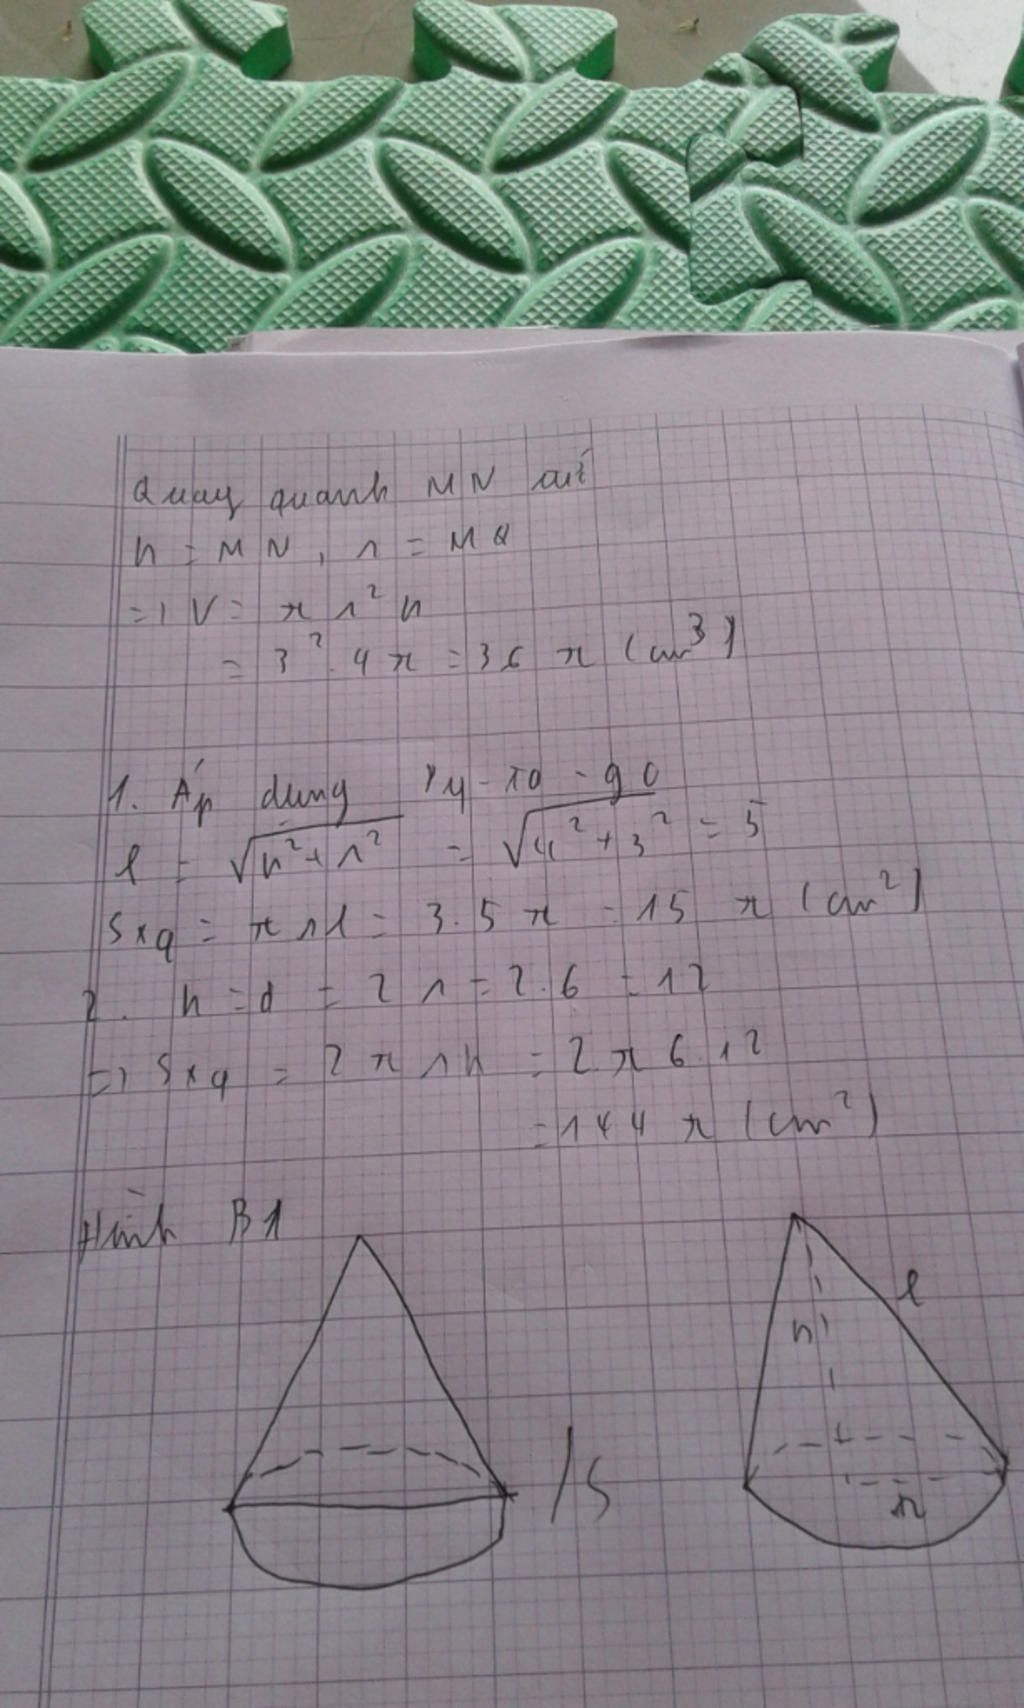 Quay quanh MN thì
h = MN, r = MQ
=> V = π r² h
= 3².4π = 36 π (cm³)
1. Áp dụng Py-ta-go
l = √(h²+r²) = √(4²+3²) = 5
Sxq = π r l = 3.5 π = 15 π (cm²)
2. h = d = 2r = 2.6 = 12
=> Sxq = 2 π r h = 2.π 6.12
= 144 π (cm²)
Hình B1
l
h
/S
r